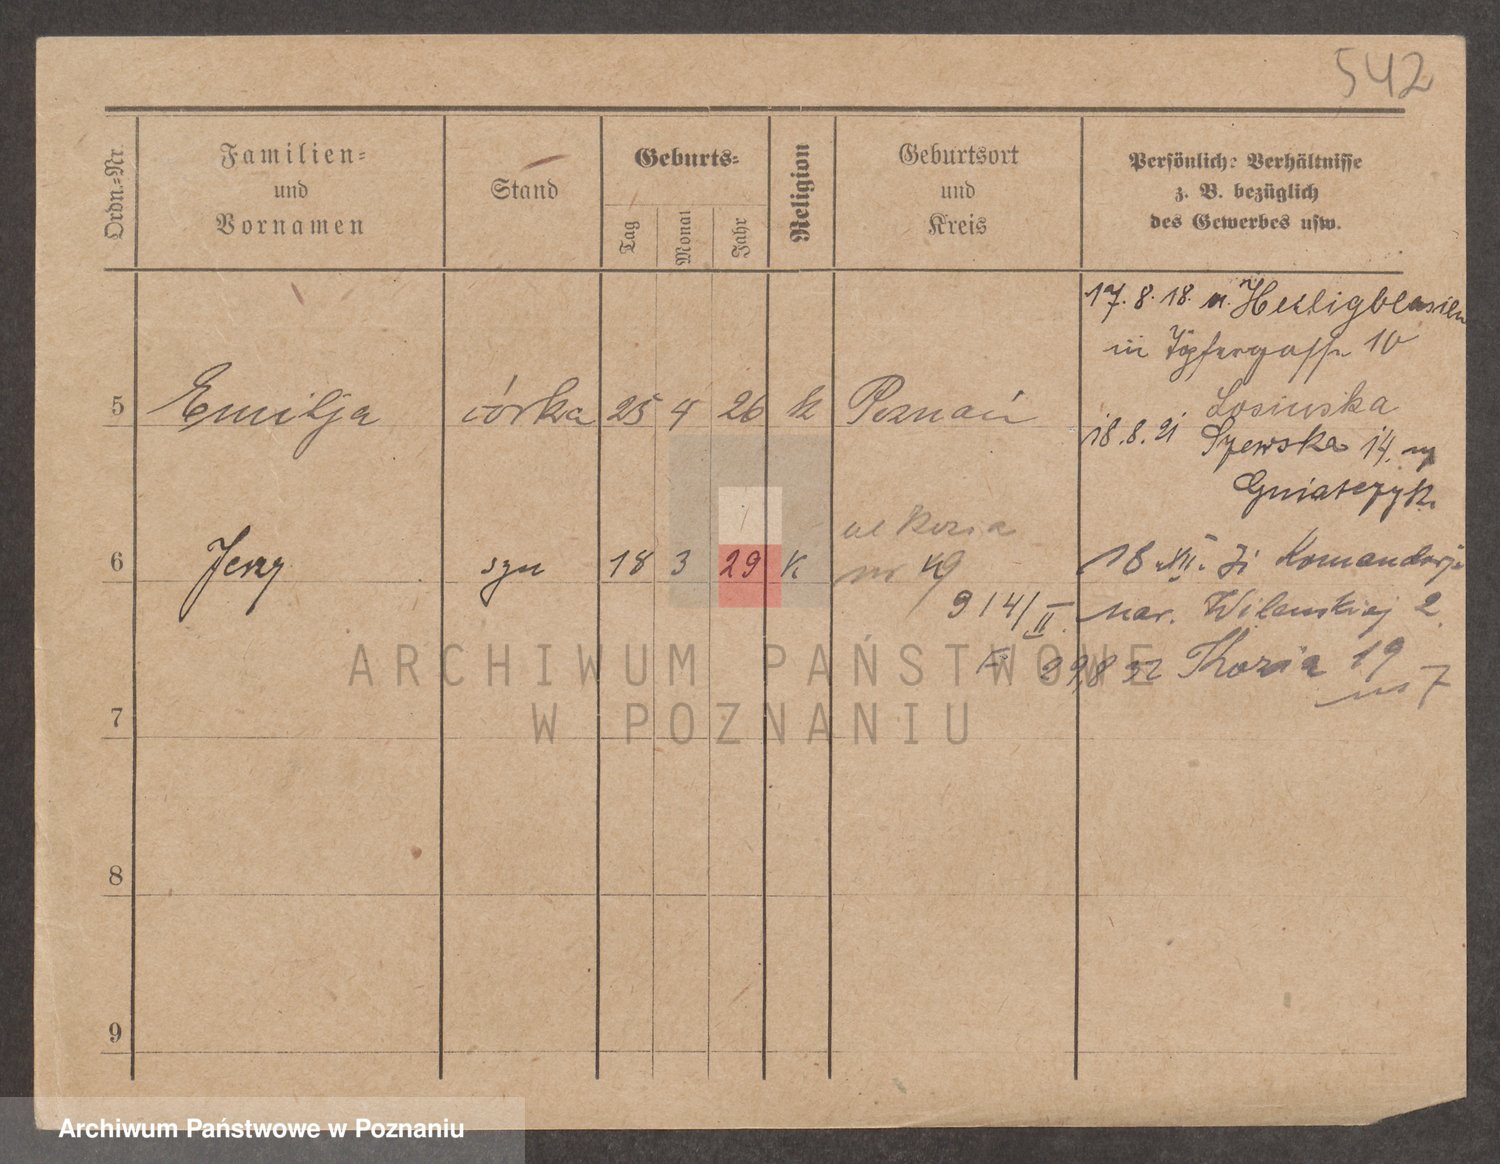 542
Ordn.=Nr.
Familien=
und
Vornamen
Stand
Geburts=
Tag
Monat
Jahr
Religion
Geburtsort
und
Kreis
Persönliche Verhältnisse
z. B. bezüglich
des Gewerbes usw.
17. 8. 18. n.
in Töpfergasse 10
5 Emilja córka 25 4 26 k Poznań
18. 8. 21 Szewska 14.
Gniatczyk.
6 Jerzy syn 18 3 29 K
ul Kozia
nr 19
18 XII. Komandorja
9/4/II nar. Wilenskiej 2.
Kozia 19
7
ARCHIWUM PAŃSTWOWE
W POZNANIU
7
8
9
Archiwum Państwowe w Poznaniu